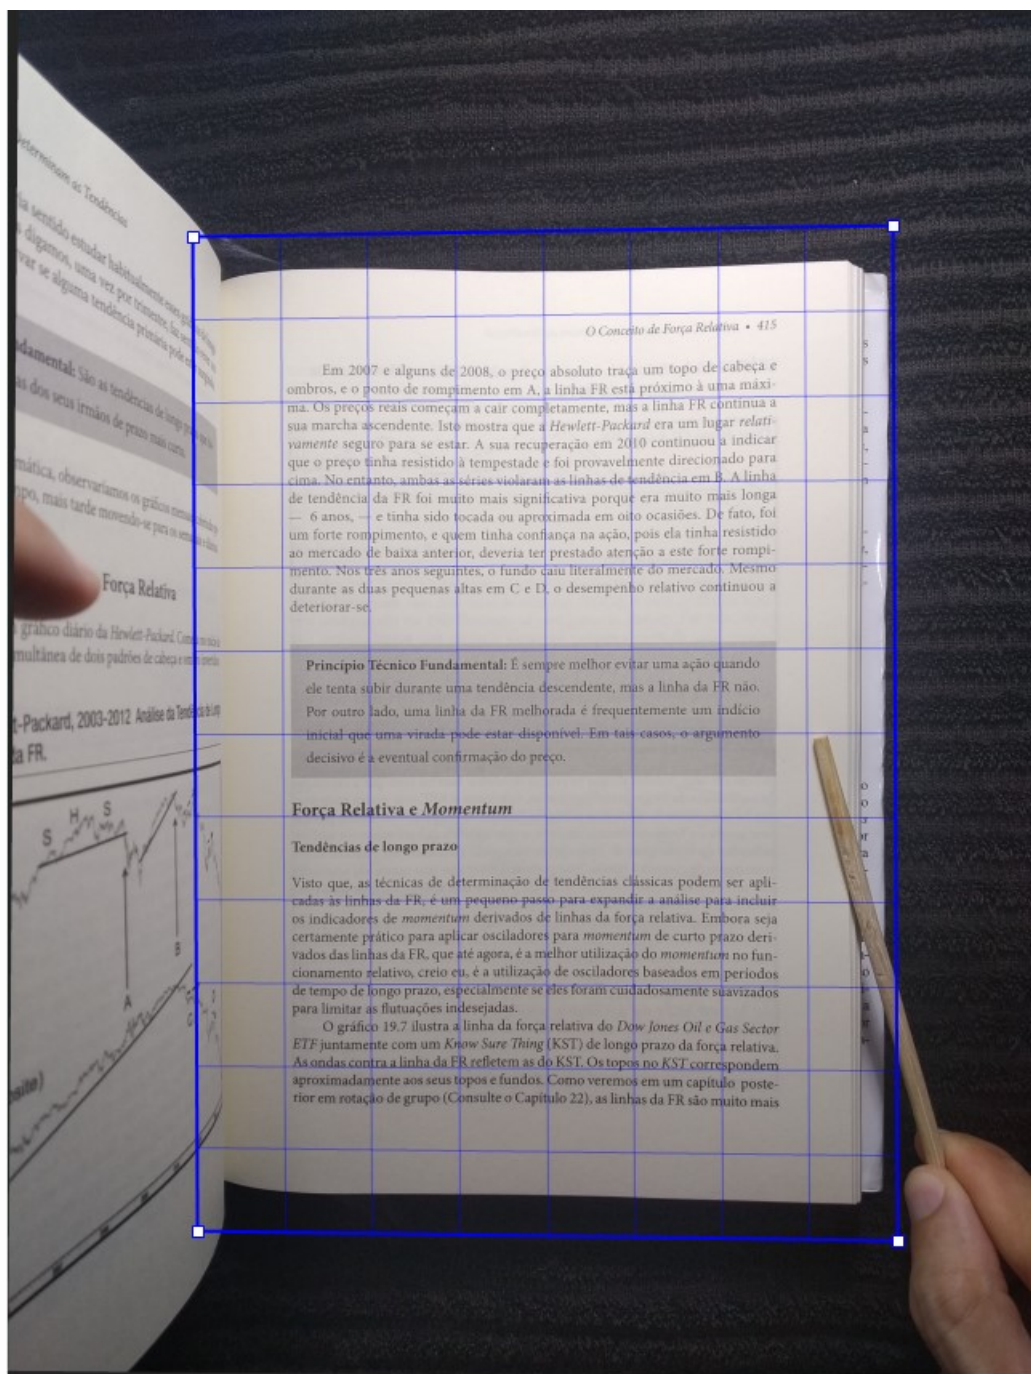 Determinam as Tendências
ria sentido estudar habitualmente esses
s digamos, uma vez por trimestre,
var se alguma tendência primária pode
ndamental: São as tendências de longo
as dos seus irmãos de prazo mais curto.
mática, observaríamos os gráficos
mpo, mais tarde movendo-se para os
Força Relativa
gráfico diário da Hewlett-Packard.
multânea de dois padrões de cabeça e
t-Packard, 2003-2012 Análise da
ta FR.
S H S
B
A
osite)
O Conceito de Força Relativa • 415
Em 2007 e alguns de 2008, o preço absoluto traça um topo de cabeça e
ombros, e o ponto de rompimento em A, a linha FR está próximo à uma máxi-
ma. Os preços reais começam a cair completamente, mas a linha FR continua a
sua marcha ascendente. Isto mostra que a Hewlett-Packard era um lugar relati-
vamente seguro para se estar. A sua recuperação em 2010 continuou a indicar
que o preço tinha resistido à tempestade e foi provavelmente direcionado para
cima. No entanto, ambas as séries violaram as linhas de tendência em B. A linha
de tendência da FR foi muito mais significativa porque era muito mais longa
— 6 anos, — e tinha sido tocada ou aproximada em oito ocasiões. De fato, foi
um forte rompimento, e quem tinha confiança na ação, pois ela tinha resistido
ao mercado de baixa anterior, deveria ter prestado atenção a este forte rompi-
mento. Nos três anos seguintes, o fundo caiu literalmente do mercado. Mesmo
durante as duas pequenas altas em C e D, o desempenho relativo continuou a
deteriorar-se.
Princípio Técnico Fundamental: É sempre melhor evitar uma ação quando
ele tenta subir durante uma tendência descendente, mas a linha da FR não.
Por outro lado, uma linha da FR melhorada é frequentemente um indício
inicial que uma virada pode estar disponível. Em tais casos, o argumento
decisivo é a eventual confirmação do preço.
Força Relativa e Momentum
Tendências de longo prazo
Visto que, as técnicas de determinação de tendências clássicas podem ser apli-
cadas às linhas da FR, é um pequeno passo para expandir a análise para incluir
os indicadores de momentum derivados de linhas da força relativa. Embora seja
certamente prático para aplicar osciladores para momentum de curto prazo deri-
vados das linhas da FR, que até agora, é a melhor utilização do momentum no fun-
cionamento relativo, creio eu, é a utilização de osciladores baseados em períodos
de tempo de longo prazo, especialmente se eles foram cuidadosamente suavizados
para limitar as flutuações indesejadas.
O gráfico 19.7 ilustra a linha da força relativa do Dow Jones Oil e Gas Sector
ETF juntamente com um Know Sure Thing (KST) de longo prazo da força relativa.
As ondas contra a linha da FR refletem as do KST. Os topos no KST correspondem
aproximadamente aos seus topos e fundos. Como veremos em um capítulo poste-
rior em rotação de grupo (Consulte o Capítulo 22), as linhas da FR são muito mais